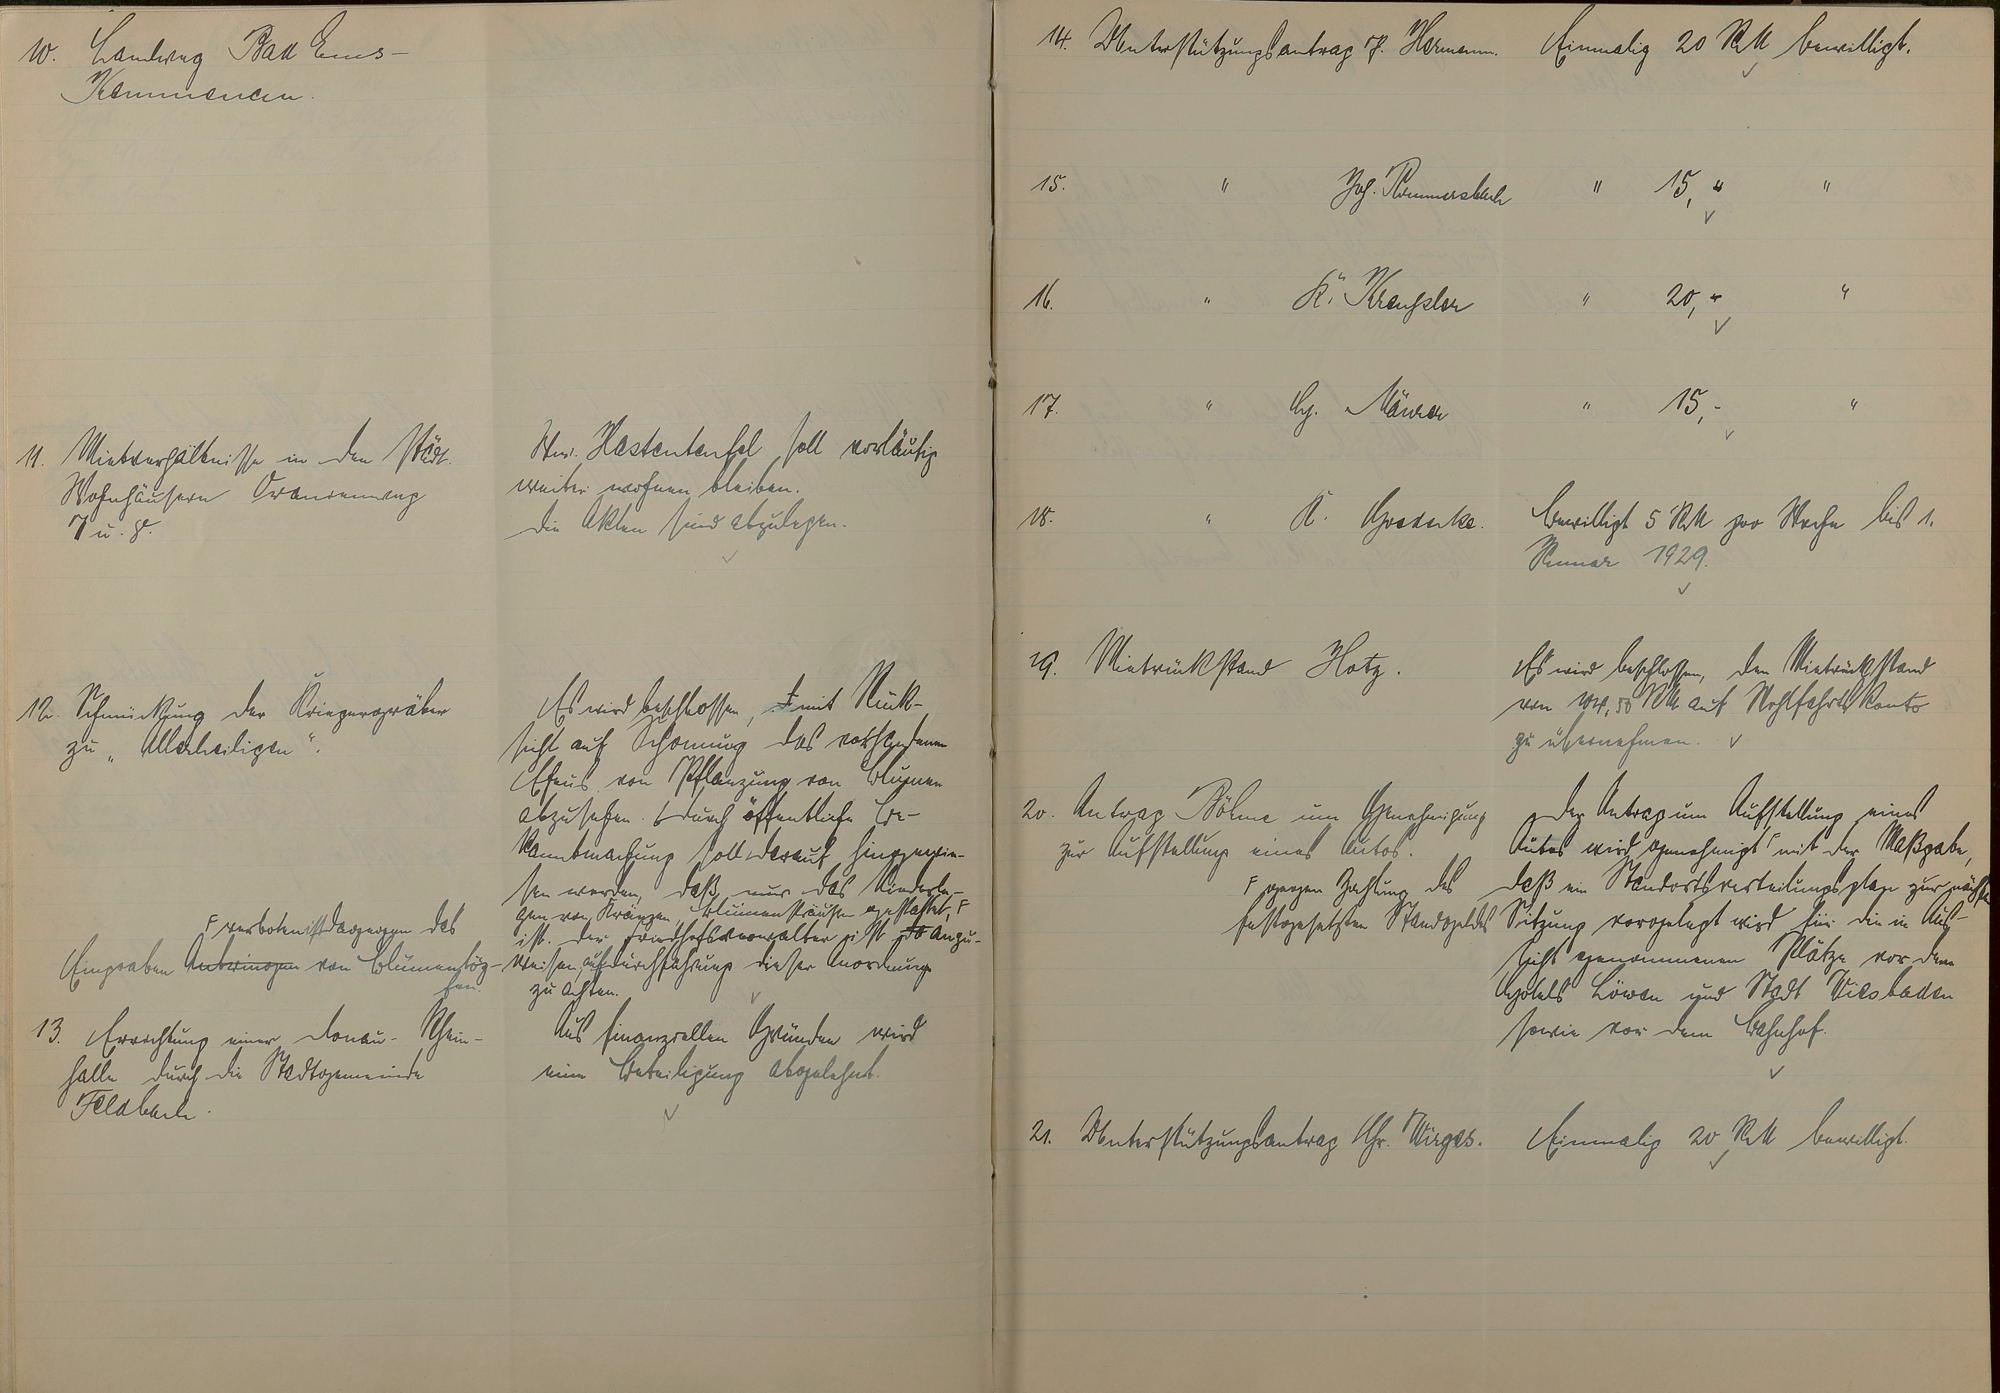 10. Landweg Bad Ems-
Kemmenau.
11. Mietverhältnisse in den städt.
Wohnhäusern Oranienweg
7 u. 8.
Hastenteufel soll vorläufig
weiter wohnen bleiben.
Die Akten sind abzulegen.
12. Schmückung der Kriegergräber
zu „Allerheiligen“.
Es wird beschlossen, mit Rück-
sicht auf Schonung des vorhandenen
Efeus von Pflanzung von Blumen
abzusehen. Durch öffentliche Be-
kanntmachung soll darauf hingewie-
sen werden, daß nur das Niederle-
gen von Kränzen, Blumensträußen gestattet, F
ist. Der Friedhofsverwalter ist anzu-
weisen, auf Durchführung dieser Anordnung
zu achten.
F verboten ist dagegen das
Eingraben von Blumentöp-
fen.
13. Errichtung einer Donau-Rhein-
halle durch die Stadtgemeinde
Feldbach.
Aus finanziellen Gründen wird
eine Beteiligung abgelehnt.
14. Unterstützungsantrag P. Hermann. Einmalig 20 RM bewilligt.
15. " Joh. Rommersbach " 15, " "
16. " K. " 20, " "
17. " Mäurer " 15,- "
18. " K. Bewilligt 5 RM pro Woche bis 1.
Januar 1929.
19. Mietrückstand Hotz.
Es wird beschlossen, den Mietrückstand
von RM auf Wohlfahrtskonto
zu übernehmen.
20. Antrag Böhme um Genehmigung
zur Aufstellung eines Autos.
F gegen Zahlung des
festgesetzten Standgeldes
Der Antrag um Aufstellung eines
Autos wird genehmigt F mit der Maßgabe,
daß ein Standortsverteilungsplan zur nächsten
Sitzung vorgelegt wird für die in Aus-
sicht genommenen Plätze vor dem
Hotels Löwen und Stadt Wiesbaden
sowie vor dem Bahnhof.
21. Unterstützungsantrag Chr. Wirges. Einmalig 20 RM bewilligt.